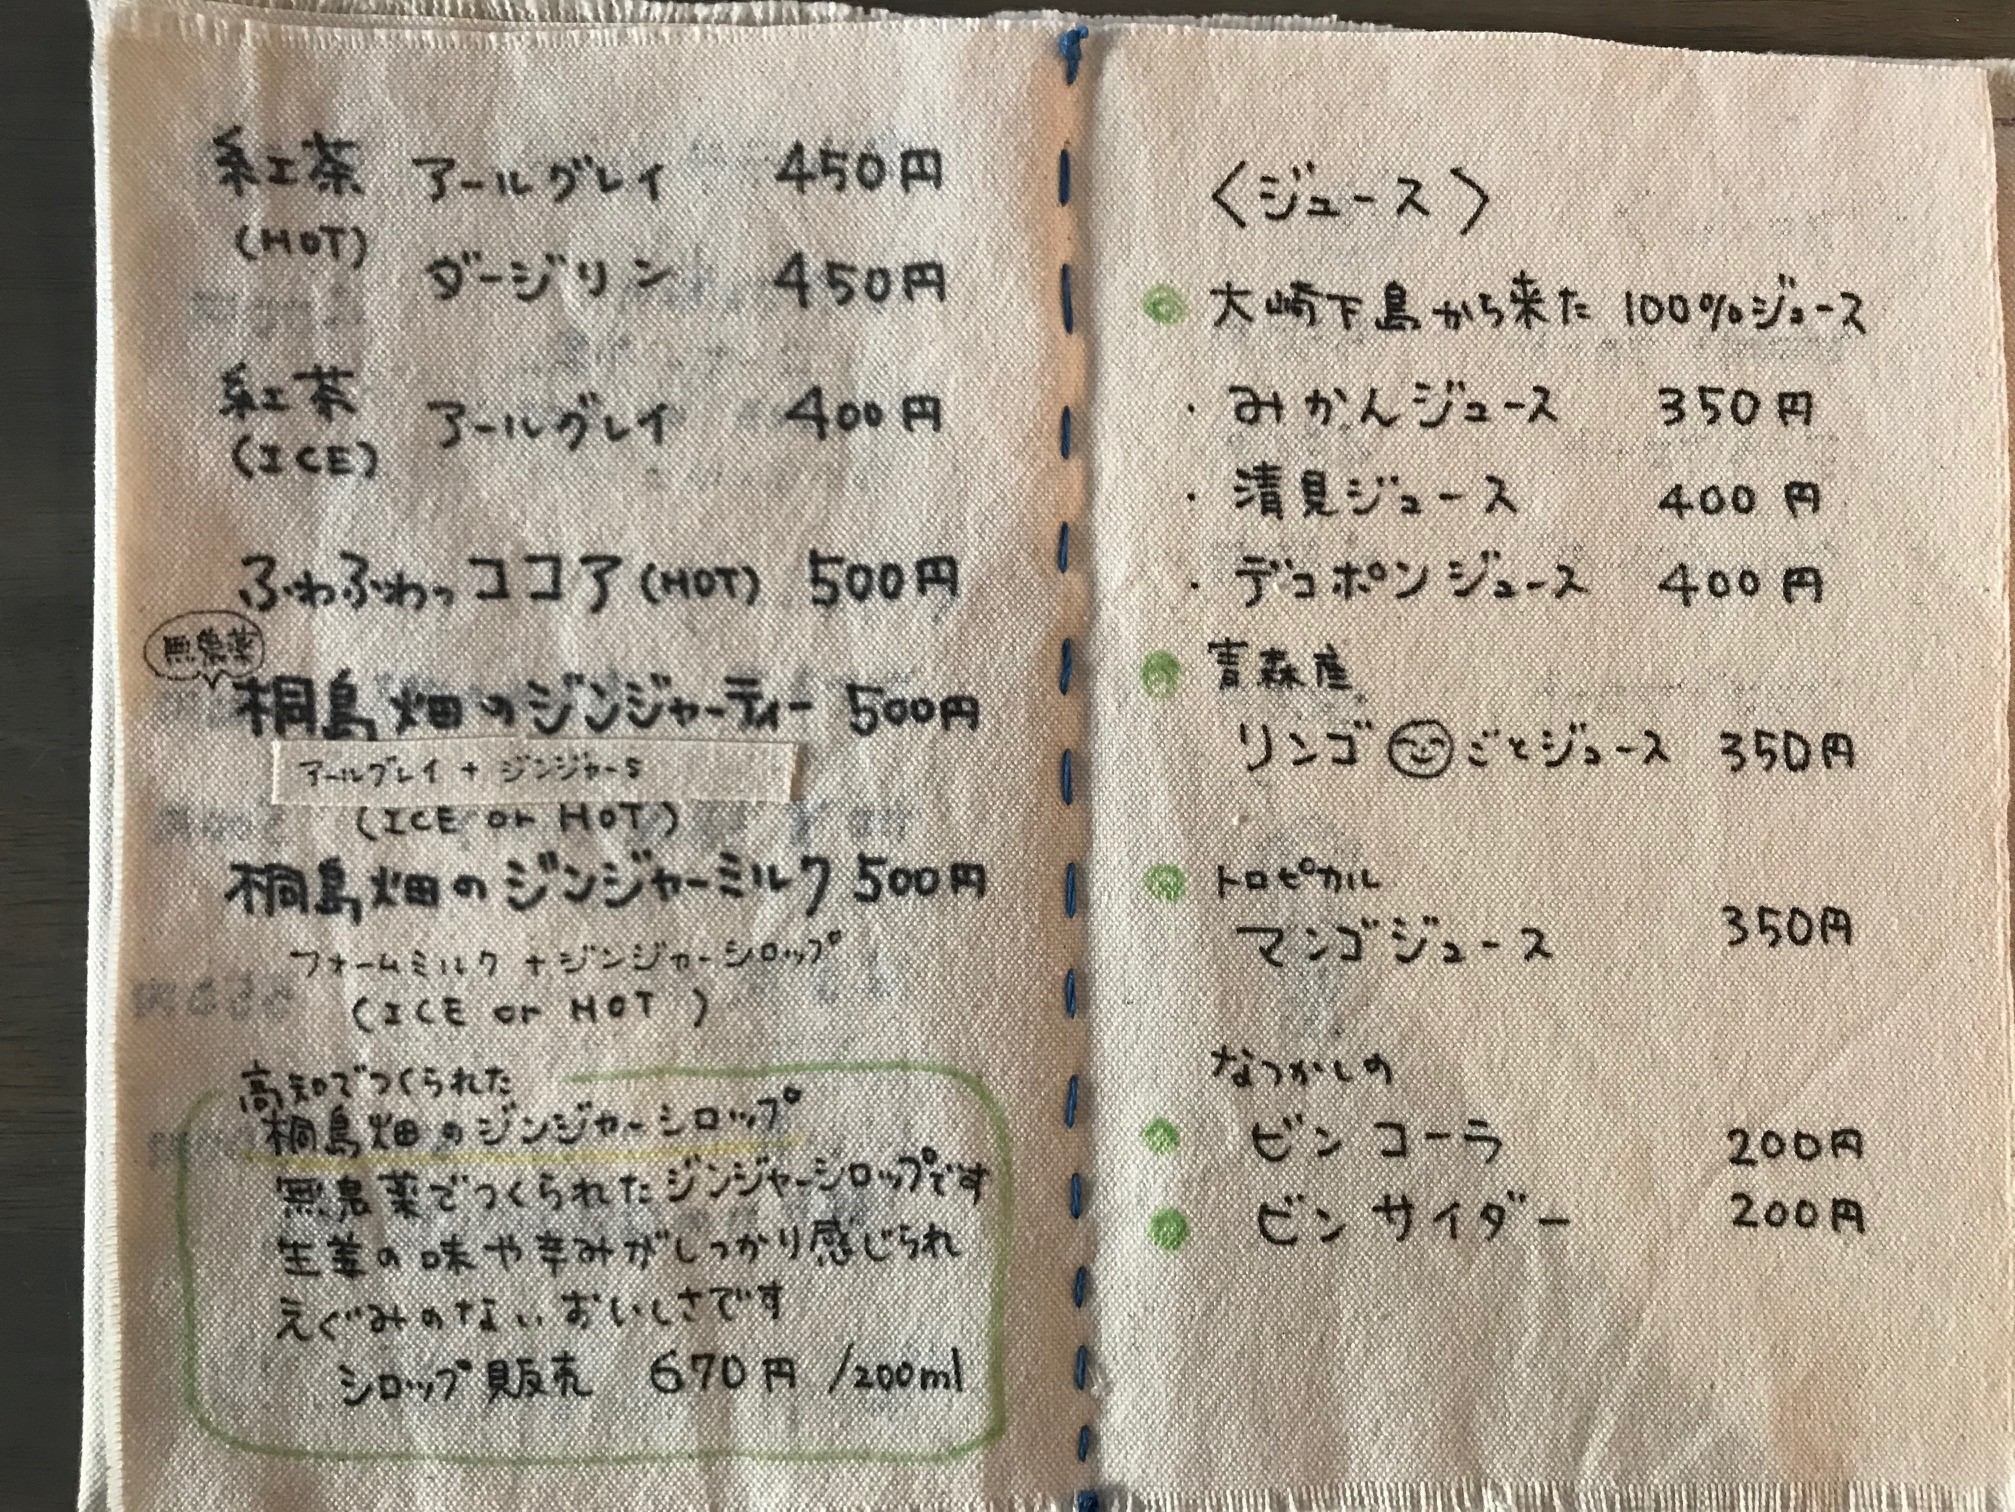 紅茶 アールグレイ 450円
(HOT)
ダージリン 450円
紅茶 アールグレイ 400円
(ICE)
ふわふわっココア(HOT) 500円
無農薬
桐島畑のジンジャーティー 500円
アールグレイ + ジンジャーS
(ICE or HOT)
桐島畑のジンジャーミルク 500円
フォームミルク + ジンジャーシロップ
(ICE or HOT)
高知でつくられた
桐島畑のジンジャーシロップ
無農薬でつくられたジンジャーシロップです
生姜の味や辛みがしっかり感じられ
えぐみのないおいしさです
シロップ販売 670円 /200ml
〈ジュース〉
大崎下島から来た 100%ジュース
・みかんジュース 350円
・清見ジュース 400円
・デコポンジュース 400円
青森産
リンゴ ごとジュース 350円
トロピカル
マンゴジュース 350円
なつかしの
ビンコーラ 200円
ビンサイダー 200円